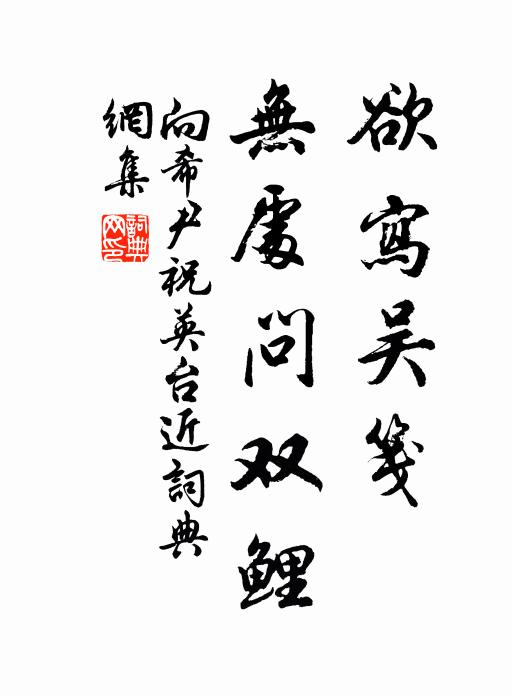 欲寫吴箋
無處問双鯉
向希尹祝英台近詞典
網集
詞典
网印